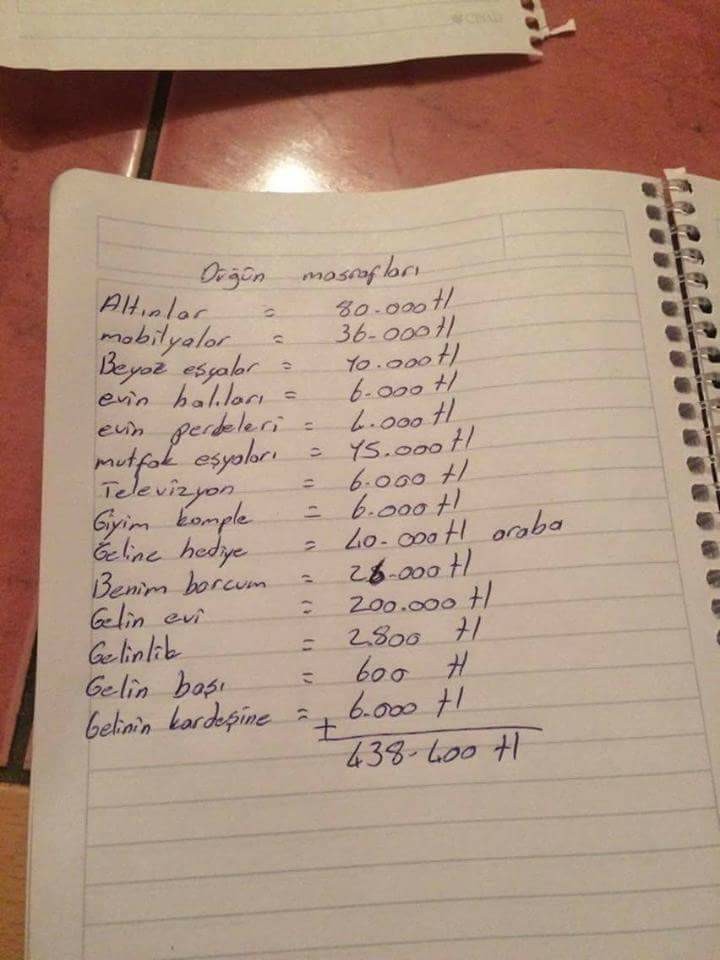 Düğün masrafları
Altınlar = 80.000 tl
mobilyalar = 36.000 tl
Beyaz eşyalar = 10.000 tl
evin halıları = 6.000 tl
evin perdeleri = 4.000 tl
mutfak eşyaları = 15.000 tl
Televizyon = 6.000 tl
Giyim komple = 6.000 tl
Geline hediye = 40.000 tl araba
Benim borcum = 26.000 tl
Gelin evi = 200.000 tl
Gelinlik = 2.800 tl
Gelin başı = 600 tl
Gelinin kardeşine = 6.000 tl
+
438.400 tl